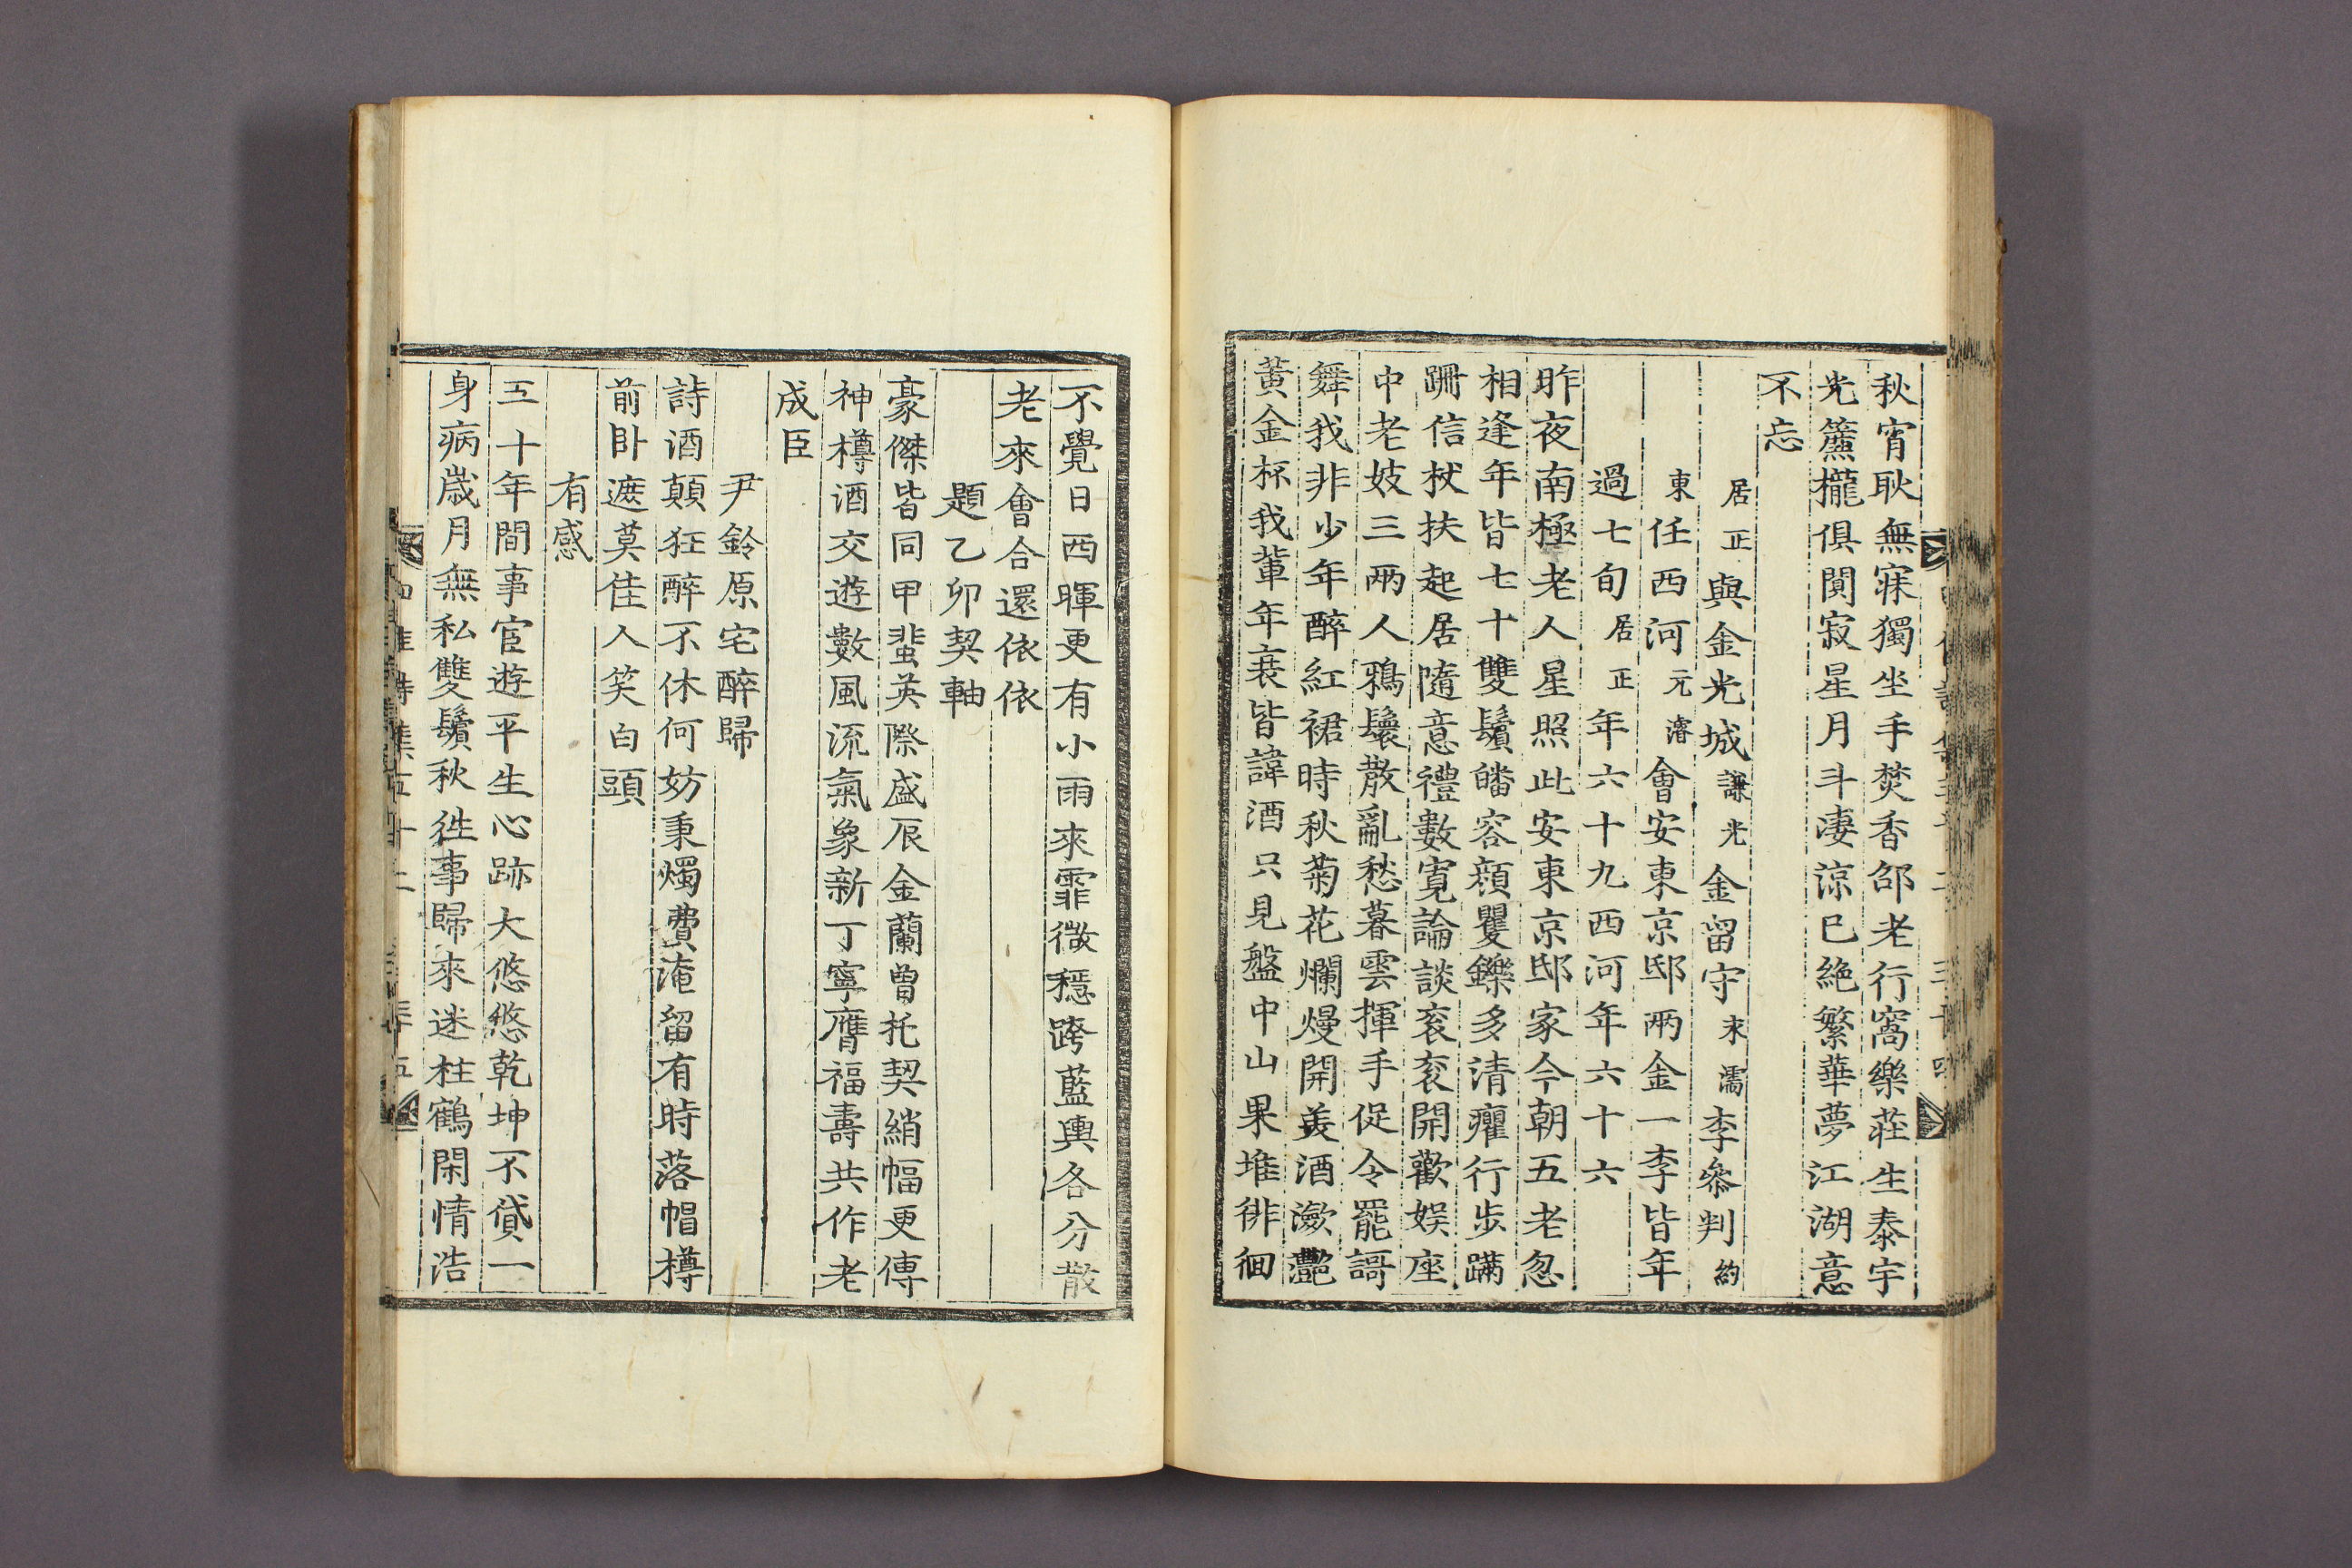 秋宵耿無寐獨坐手焚香邵老行窩樂莊生泰宇
光簾櫳俱闃寂星月斗凄涼已絶繁華夢江湖意
不忘
居正與金光城謙光金留守末濡李叅判約
東任西河元濬會安東京邸兩金一李皆年
過七旬居正年六十九西河年六十六
昨夜南極老人星照此安東京邸家今朝五老忽
相逢年皆七十雙鬢皤容顔矍鑠多清癯行步蹣
跚信杖扶起居隨意禮數寬論談衮衮開歡娱座
中老妓三兩人鴉鬟散亂愁暮雲揮手促令罷謌
舞我非少年醉紅裙時秋菊花爛熳開羙酒瀲灧
黃金杯我輩年衰皆諱酒只見盤中山果堆徘徊
不覺日西暉更有小雨來霏微穩跨藍輿各分散
老來會合還依依
題乙卯契軸
豪傑皆同甲蜚英際盛辰金蘭曾托契綃幅更傳
神樽酒交遊數風流氣象新丁寧膺福壽共作老
成臣
尹鈴原宅醉歸
詩酒顛狂醉不休何妨秉燭費淹留有時落帽樽
前卧遮莫佳人笑白頭
有感
五十年間事宦遊平生心跡大悠悠乾坤不貸一
身病歲月無私雙鬢秋徃事歸來迷柱鶴閑情浩